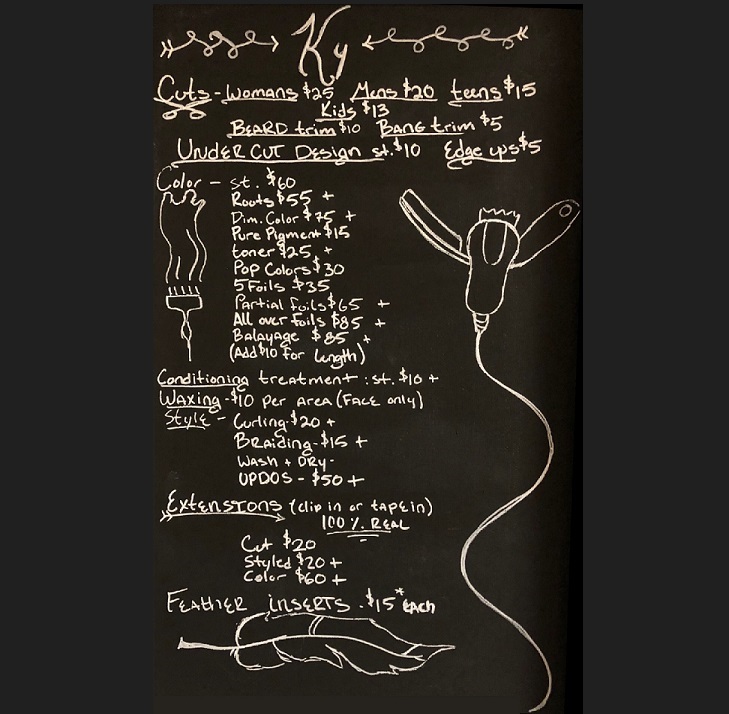 Ky
Cuts - Womans $25 Mens $20 teens $15
Kids $13
BEARD trim $10 BANG trim $5
UNDER CUT DESIGN st. $10 Edge ups $5
Color - st. $60
Roots $55 +
Dim. Color $75 +
Pure Pigment $15
toner $25 +
Pop Colors $30
5 Foils $35
Partial foils $65 +
All over foils $85 +
Balayage $85 +
(Add $10 for length)
Conditioning treatment : st. $10 +
Waxing - $10 per area (FACE only)
Style - Curling - $20 +
BRAiding - $15 +
Wash + DRy -
UPDOS - $50 +
EXTENSIONS (clip in or tape in)
100 % REAL
Cut $20
Styled $20 +
Color $60 +
FEATHER INSERTS . $15* EACH